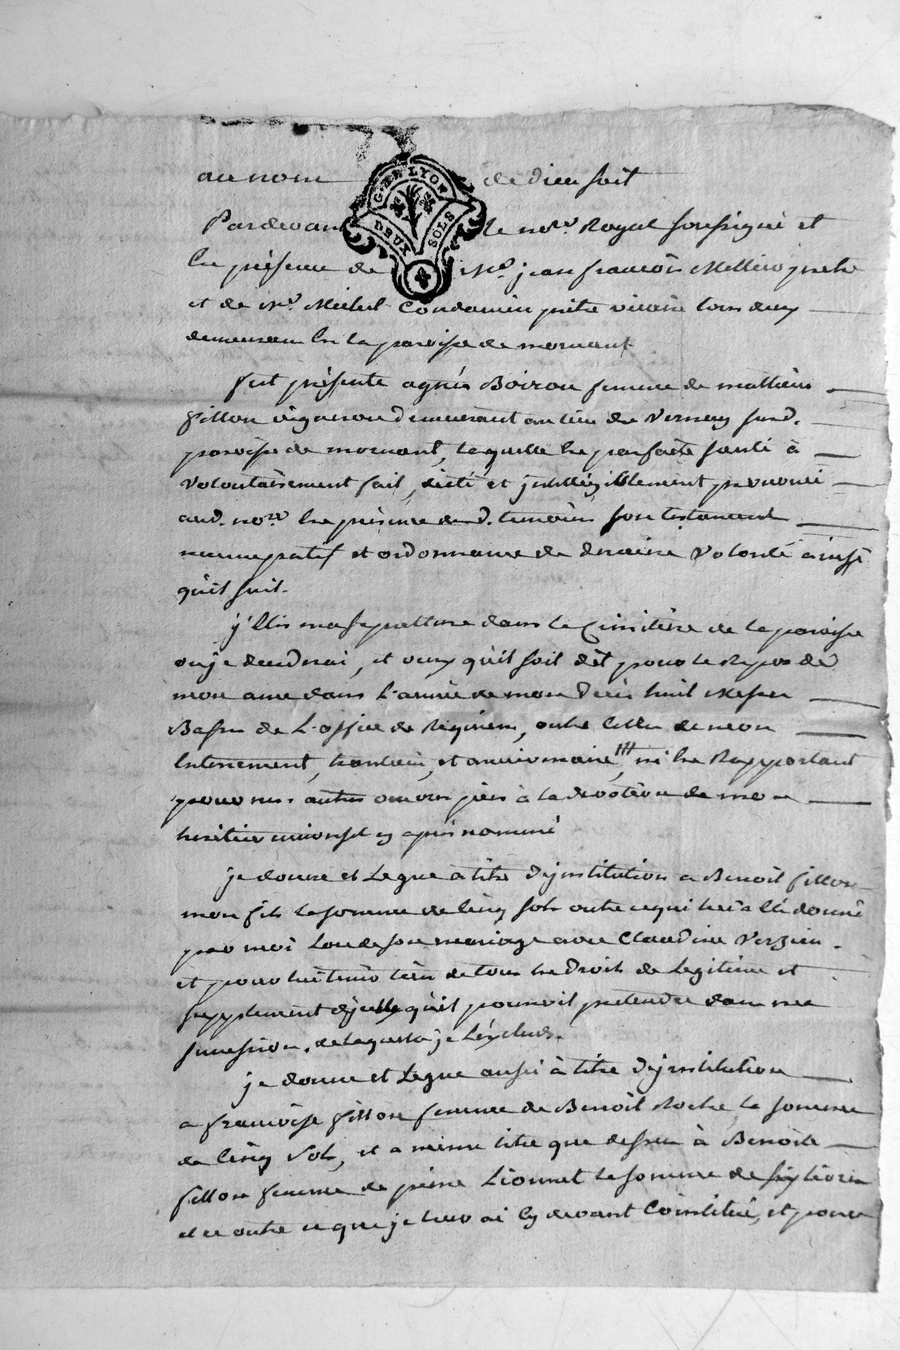 au nom de dieu soit
G. DE LYON
DEUX SOLS
Pardevant le no.re Royal soussigné et
En présence de M.e jean françois prebr
et de M.e Michel Condamin prêtre vicaire tous deux
demeurant En la paroisse de mornant
fut présente agnès Boiron femme de mathieu
fillon vigneron demeurant au lieu du Vernay susd.
paroisse de mornant, laquelle En parfaite santé à
volontairement fait, dicté et jntelligiblement prononcé
aud. no.re En présence desd. temoins son testament
nuncupatif et ordonnance de derniere volonté ainsi
qu'il suit.
j'Elis ma sepulture dans le Cimitière de la paroisse
ou je decedrai, et veux qu'il soit dit pour le Repos de
mon ame dans L'année de mon décès huit Messes
Basses de L'office de Requiem, outre Celles de mon
Enterrement, trentain, et anniversaire, m'En Rapportant
pour mes autres œuvres pies à la devotion de mon
heritier universel cy après nommé
je donne et Legue à titre d'jnstitution a Benoît fillon
mon fils la somme de Cinq sols outre ce qui lui a Eté donné
par moi Lors de son mariage avec Claudine Verzieu
et pour lui tenir lieu de tous ses Droits de Legitime et
supplement d'jcelle qu'il pourroit pretendre dans ma
succession, de laquelle je L'exclus.
je donne et Legue aussi à titre d'jnstitution
a françoise fillon femme de Benoît Roche la somme
de Cinq Sols, et a même titre que dessus à Benoite
fillon femme de pierre Lionnet la somme de six livres
et ce outre ce que je leur ai Cy devant Constitué, et pour